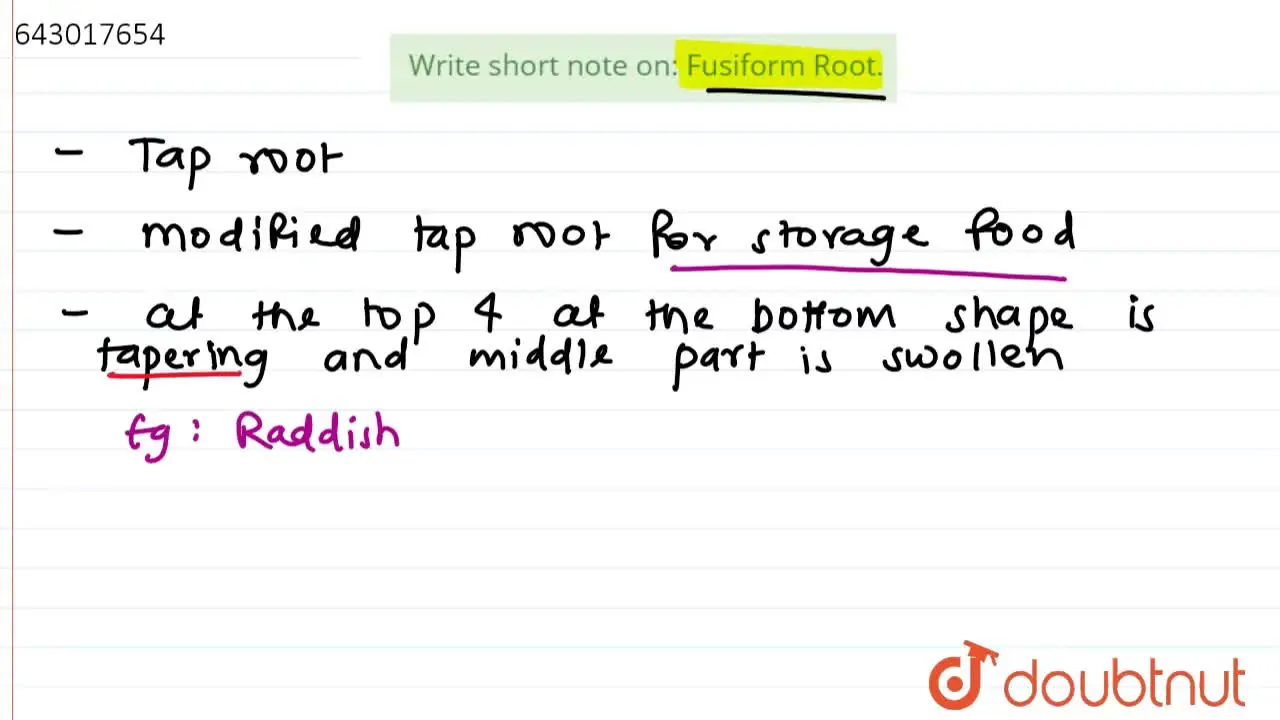 643017654
Write short note on: Fusiform Root.
- Tap root
- modified tap root for storage food
- at the top & at the bottom shape is
tapering and middle part is swollen
Eg: Raddish
doubtnut